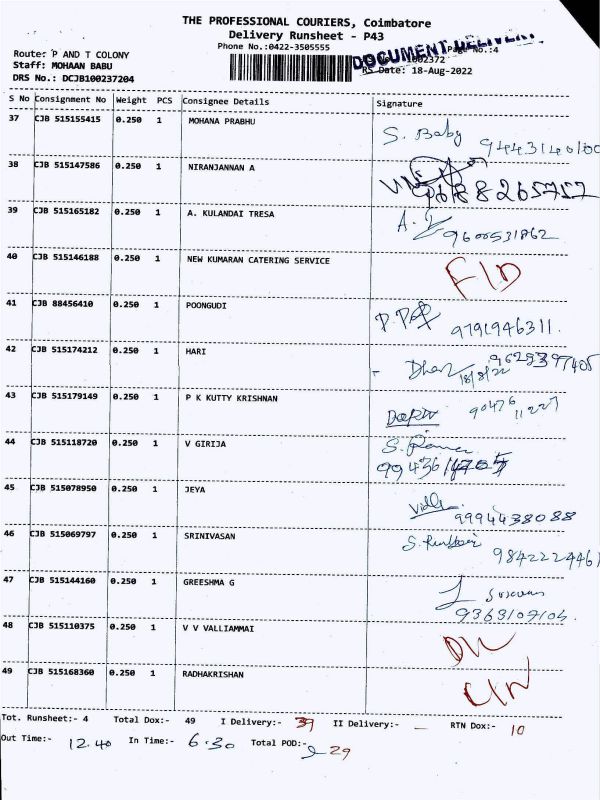 THE PROFESSIONAL COURIERS, Coimbatore
Delivery Runsheet - P43
Phone No.:0422-3505555
Page No.:4
DOCUMENT DELIVERY
Route: P AND T COLONY
Staff: MOHAAN BABU
1002372
DRS No.: DCJB100237204
RS Date: 18-Aug-2022
S No Consignment No Weight PCS Consignee Details Signature
37 CJB 515155415 0.250 1 MOHANA PRABHU S. Baby
38 CJB 515147586 0.250 1 NIRANJANNAN A 9688265757
39 CJB 515165182 0.250 1 A. KULANDAI TRESA A. 9600531862
40 CJB 515146188 0.250 1 NEW KUMARAN CATERING SERVICE
41 CJB 88456410 0.250 1 POONGUDI 9791946311.
42 CJB 515174212 0.250 1 HARI 18/8/22
43 CJB 515179149 0.250 1 P K KUTTY KRISHNAN 90476 11227
44 CJB 515118720 0.250 1 V GIRIJA
45 CJB 515078950 0.250 1 JEYA 9994438088
46 CJB 515069797 0.250 1 SRINIVASAN 9842224461
47 CJB 515144160 0.250 1 GREESHMA G
48 CJB 515110375 0.250 1 V V VALLIAMMAI
49 CJB 515168360 0.250 1 RADHAKRISHAN
Tot. Runsheet:- 4 Total Dox:- 49 I Delivery:- 39 II Delivery:- — RTN Dox:- 10
Out Time:- 12.40 In Time:- 6.30 Total POD:- 29